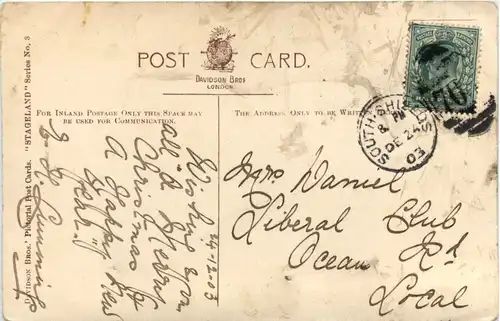 POST CARD.
DAVIDSON BROS
LONDON.
FOR INLAND POSTAGE ONLY THIS SPACE MAY
BE USED FOR COMMUNICATION.
THE ADDRESS ONLY TO BE WRITTEN
DAVIDSON BROS.' PICTORIAL POST CARDS. "STAGELAND" Series No. 3
24-12-03
Wishing you
all a Merry
Christmas &
A Happy New
Year
SOUTH SHIELDS
8
DE 24
03
Mrs Daniel
Liberal Club
Ocean Rd
Local